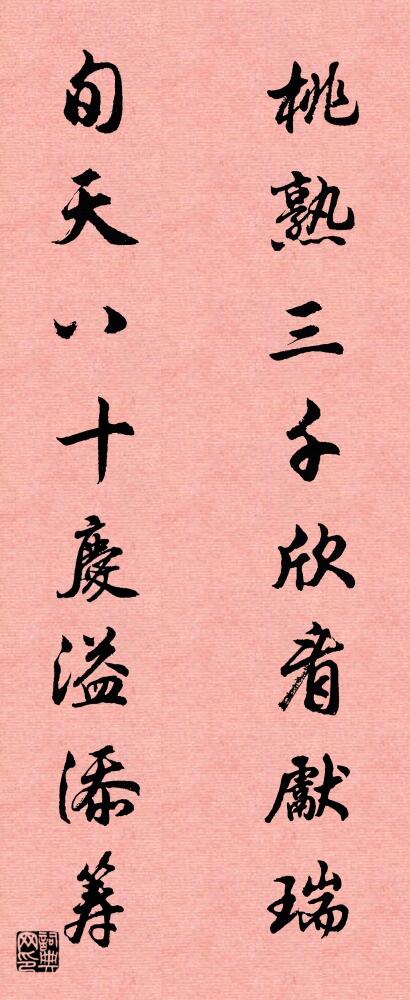 桃熟三千欣看獻瑞
旬天八十慶溢添筹
詞典
网印